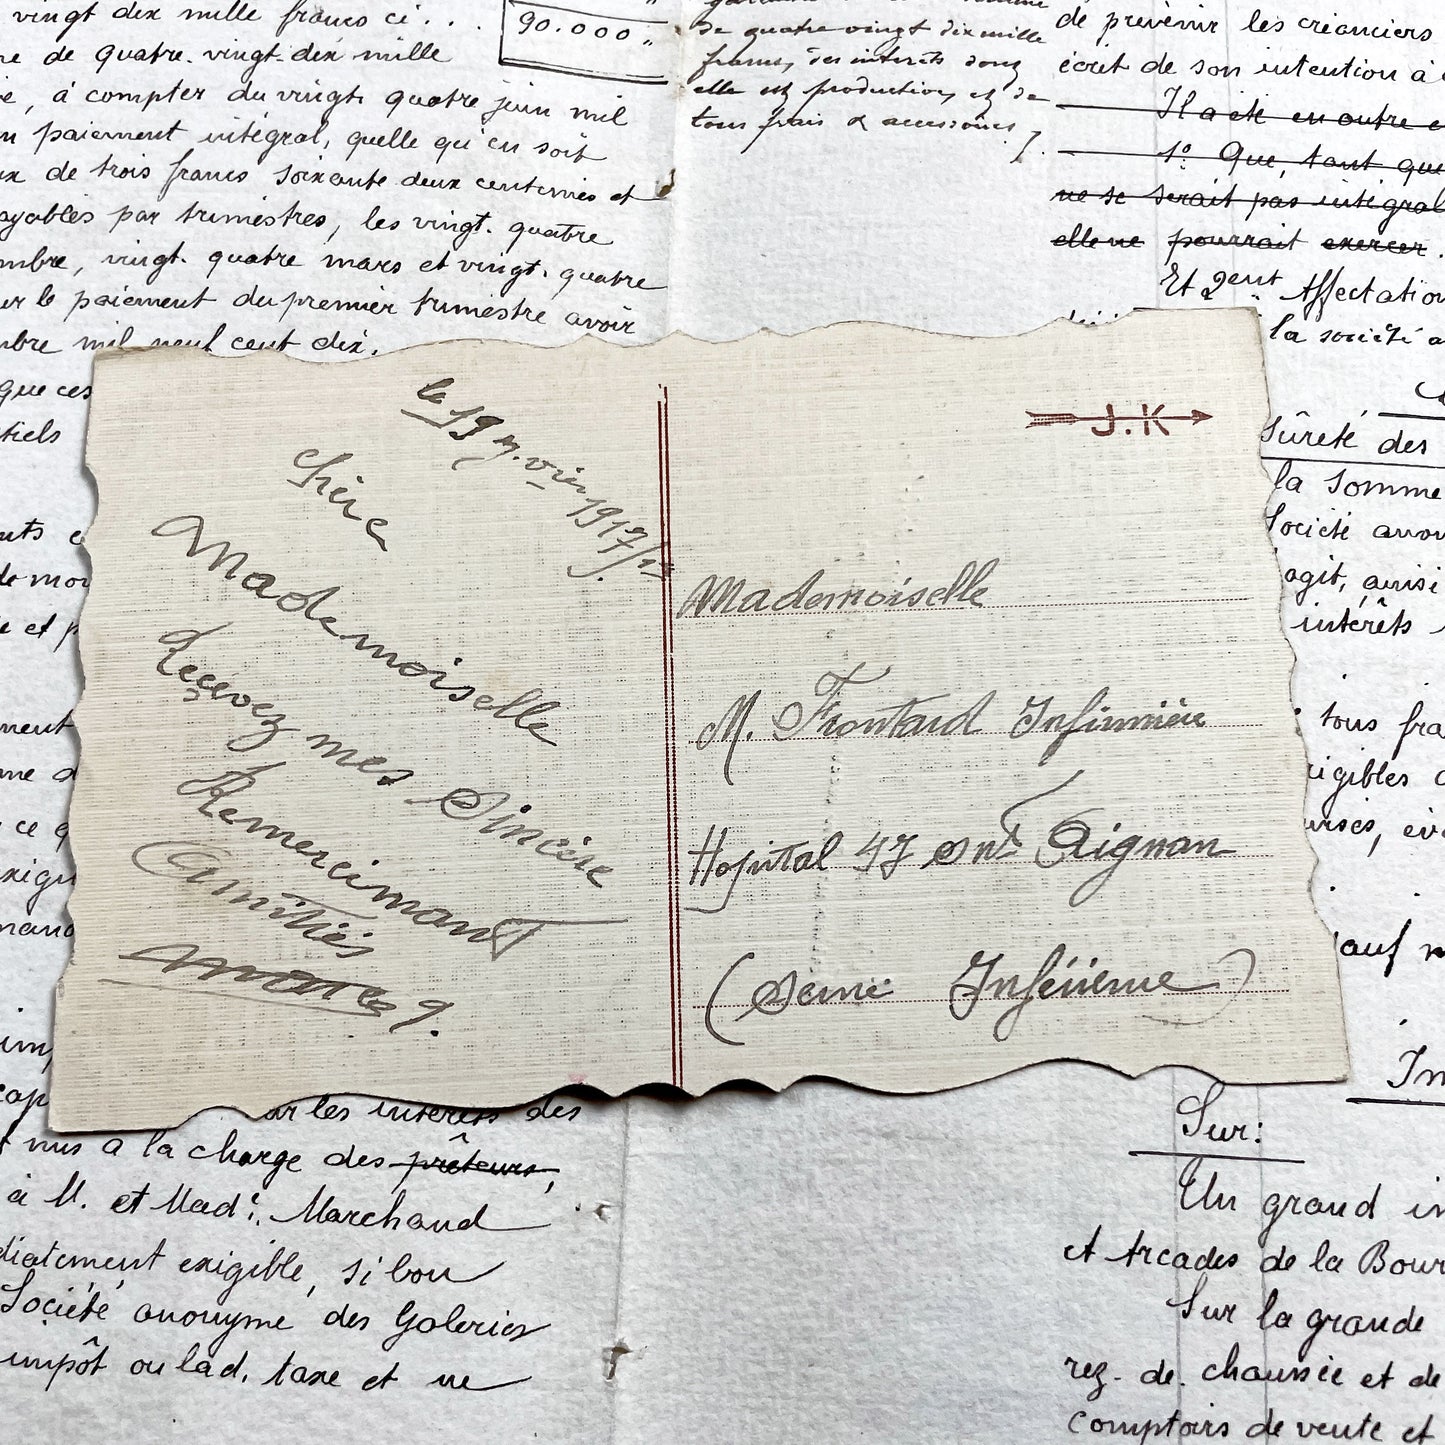 vingt dix mille francs ci . .
90.000 "
de quatre. vingt. dix mille
à compter du vingt quatre juin mil
paiement intégral, quelle qu'en soit
de trois francs soixante deux centimes et
par trimestres, les vingt. quatre
vingt. quatre mars et vingt. quatre
le paiement du premier trimestre avoir
mil neuf cent dix.
que ces
de quatre vingt dix mille
francs, des interêts dont
elle est productive, et de
tous frais & accessoires /.
de prévenir les créanciers
écrit de son intention à
Il a été en outre
1.º Que, tant que
ne se serait pas intégral
elle ne pourrait exercer.
Et 2ent Affectation
la société
Sûreté des
la somme
Société
agit, ainsi
intérêts
tous
le 19 1917
Chère
Mademoiselle
Recevez mes Sincère
Remercimant
Amitiés
J.K
Mademoiselle
M. Frontard Infirmière
Hopital 47 Snt Aignan
(Seine Inférieure)
sauf
les intérêts des
à la charge des prêteurs,
à M. et Made. Marchand
exigible, si bon
Société anonyme des Galeries
impôt ou lad. taxe et ne
Sur:
Un grand
et Arcades de la
Sur la grande
rez. de. chaussée et de
comptoirs de vente et